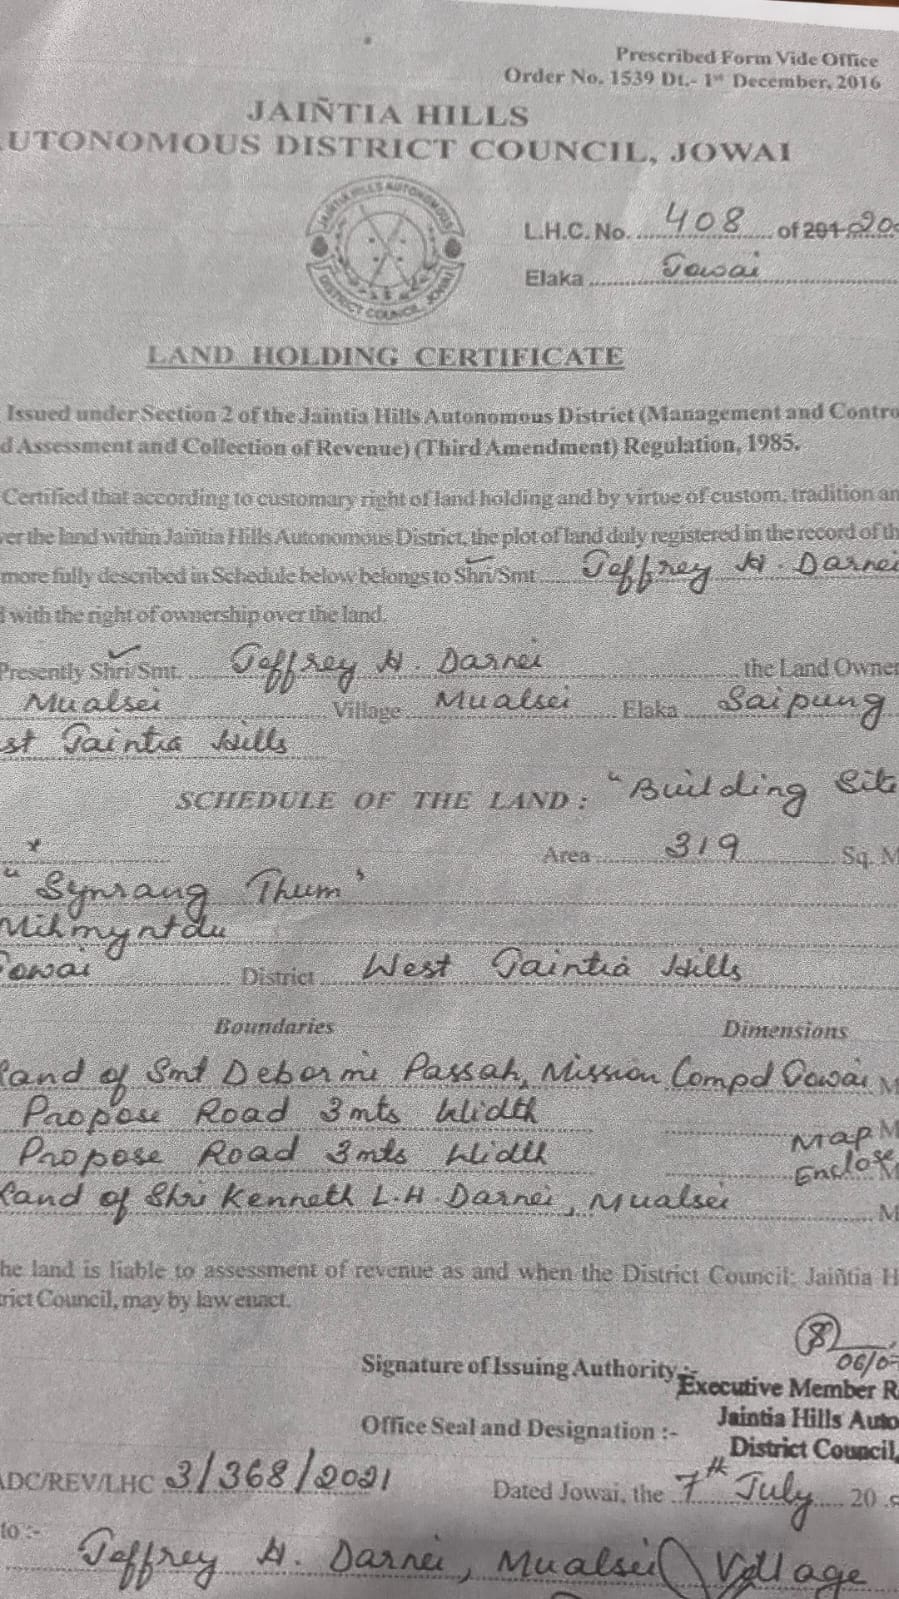 Prescribed Form Vide Office
Order No. 1539 Dt.- 1st December, 2016
JAIÑTIA HILLS
UTONOMOUS DISTRICT COUNCIL, JOWAI
JAIÑTIA HILLS AUTONOMOUS
DISTRICT COUNCIL, JOWAI
L.H.C. No. 408 of 201 20
Elaka Jowai
LAND HOLDING CERTIFICATE
Issued under Section 2 of the Jaintia Hills Autonomous District (Management and Contro
d Assessment and Collection of Revenue) (Third Amendment) Regulation, 1985.
Certified that according to customary right of land holding and by virtue of custom, tradition an
ver the land within Jaiñtia Hills Autonomous District, the plot of land duly registered in the record of th
more fully described in Schedule below belongs to Shri/Smt Jeffrey H. Darnei
d with the right of ownership over the land.
Presently Shri/Smt. Jeffrey H. Darnei the Land Owner
Mualsei Village Mualsei Elaka Saipung
st Jaintia Hills
SCHEDULE OF THE LAND : "Building Site
Area 319 Sq. M
"Synrang Thum'
Mihmyntdu
Jowai District West Jaintia Hills
Boundaries Dimensions
Land of Smt Debormi Passah, Mission Compd Jowai M
Propose Road 3mts Width Map M
Propose Road 3mts Width Enclose M
Land of Shri Kenneth L.H. Darnei, Mualsei M
he land is liable to assessment of revenue as and when the District Council; Jaiñtia H
rict Council, may by law enact.
06/0
Signature of Issuing Authority :-
Executive Member R
Jaintia Hills Auto
Office Seal and Designation :-
District Council,
ADC/REV/LHC 3/368/2021 Dated Jowai, the 7th July 20
to :-
Jeffrey H. Darnei, Mualsei Village